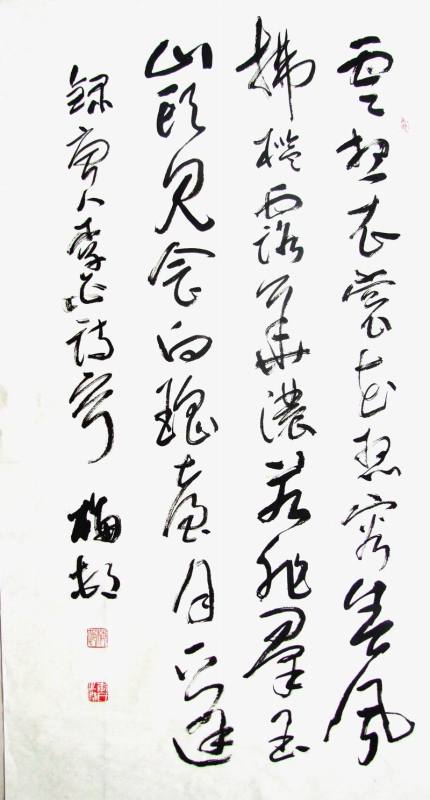 雲想衣裳花想容春風
拂檻露華濃若非羣玉
山頭見会向瑤臺月下逢
錄唐人李白詩